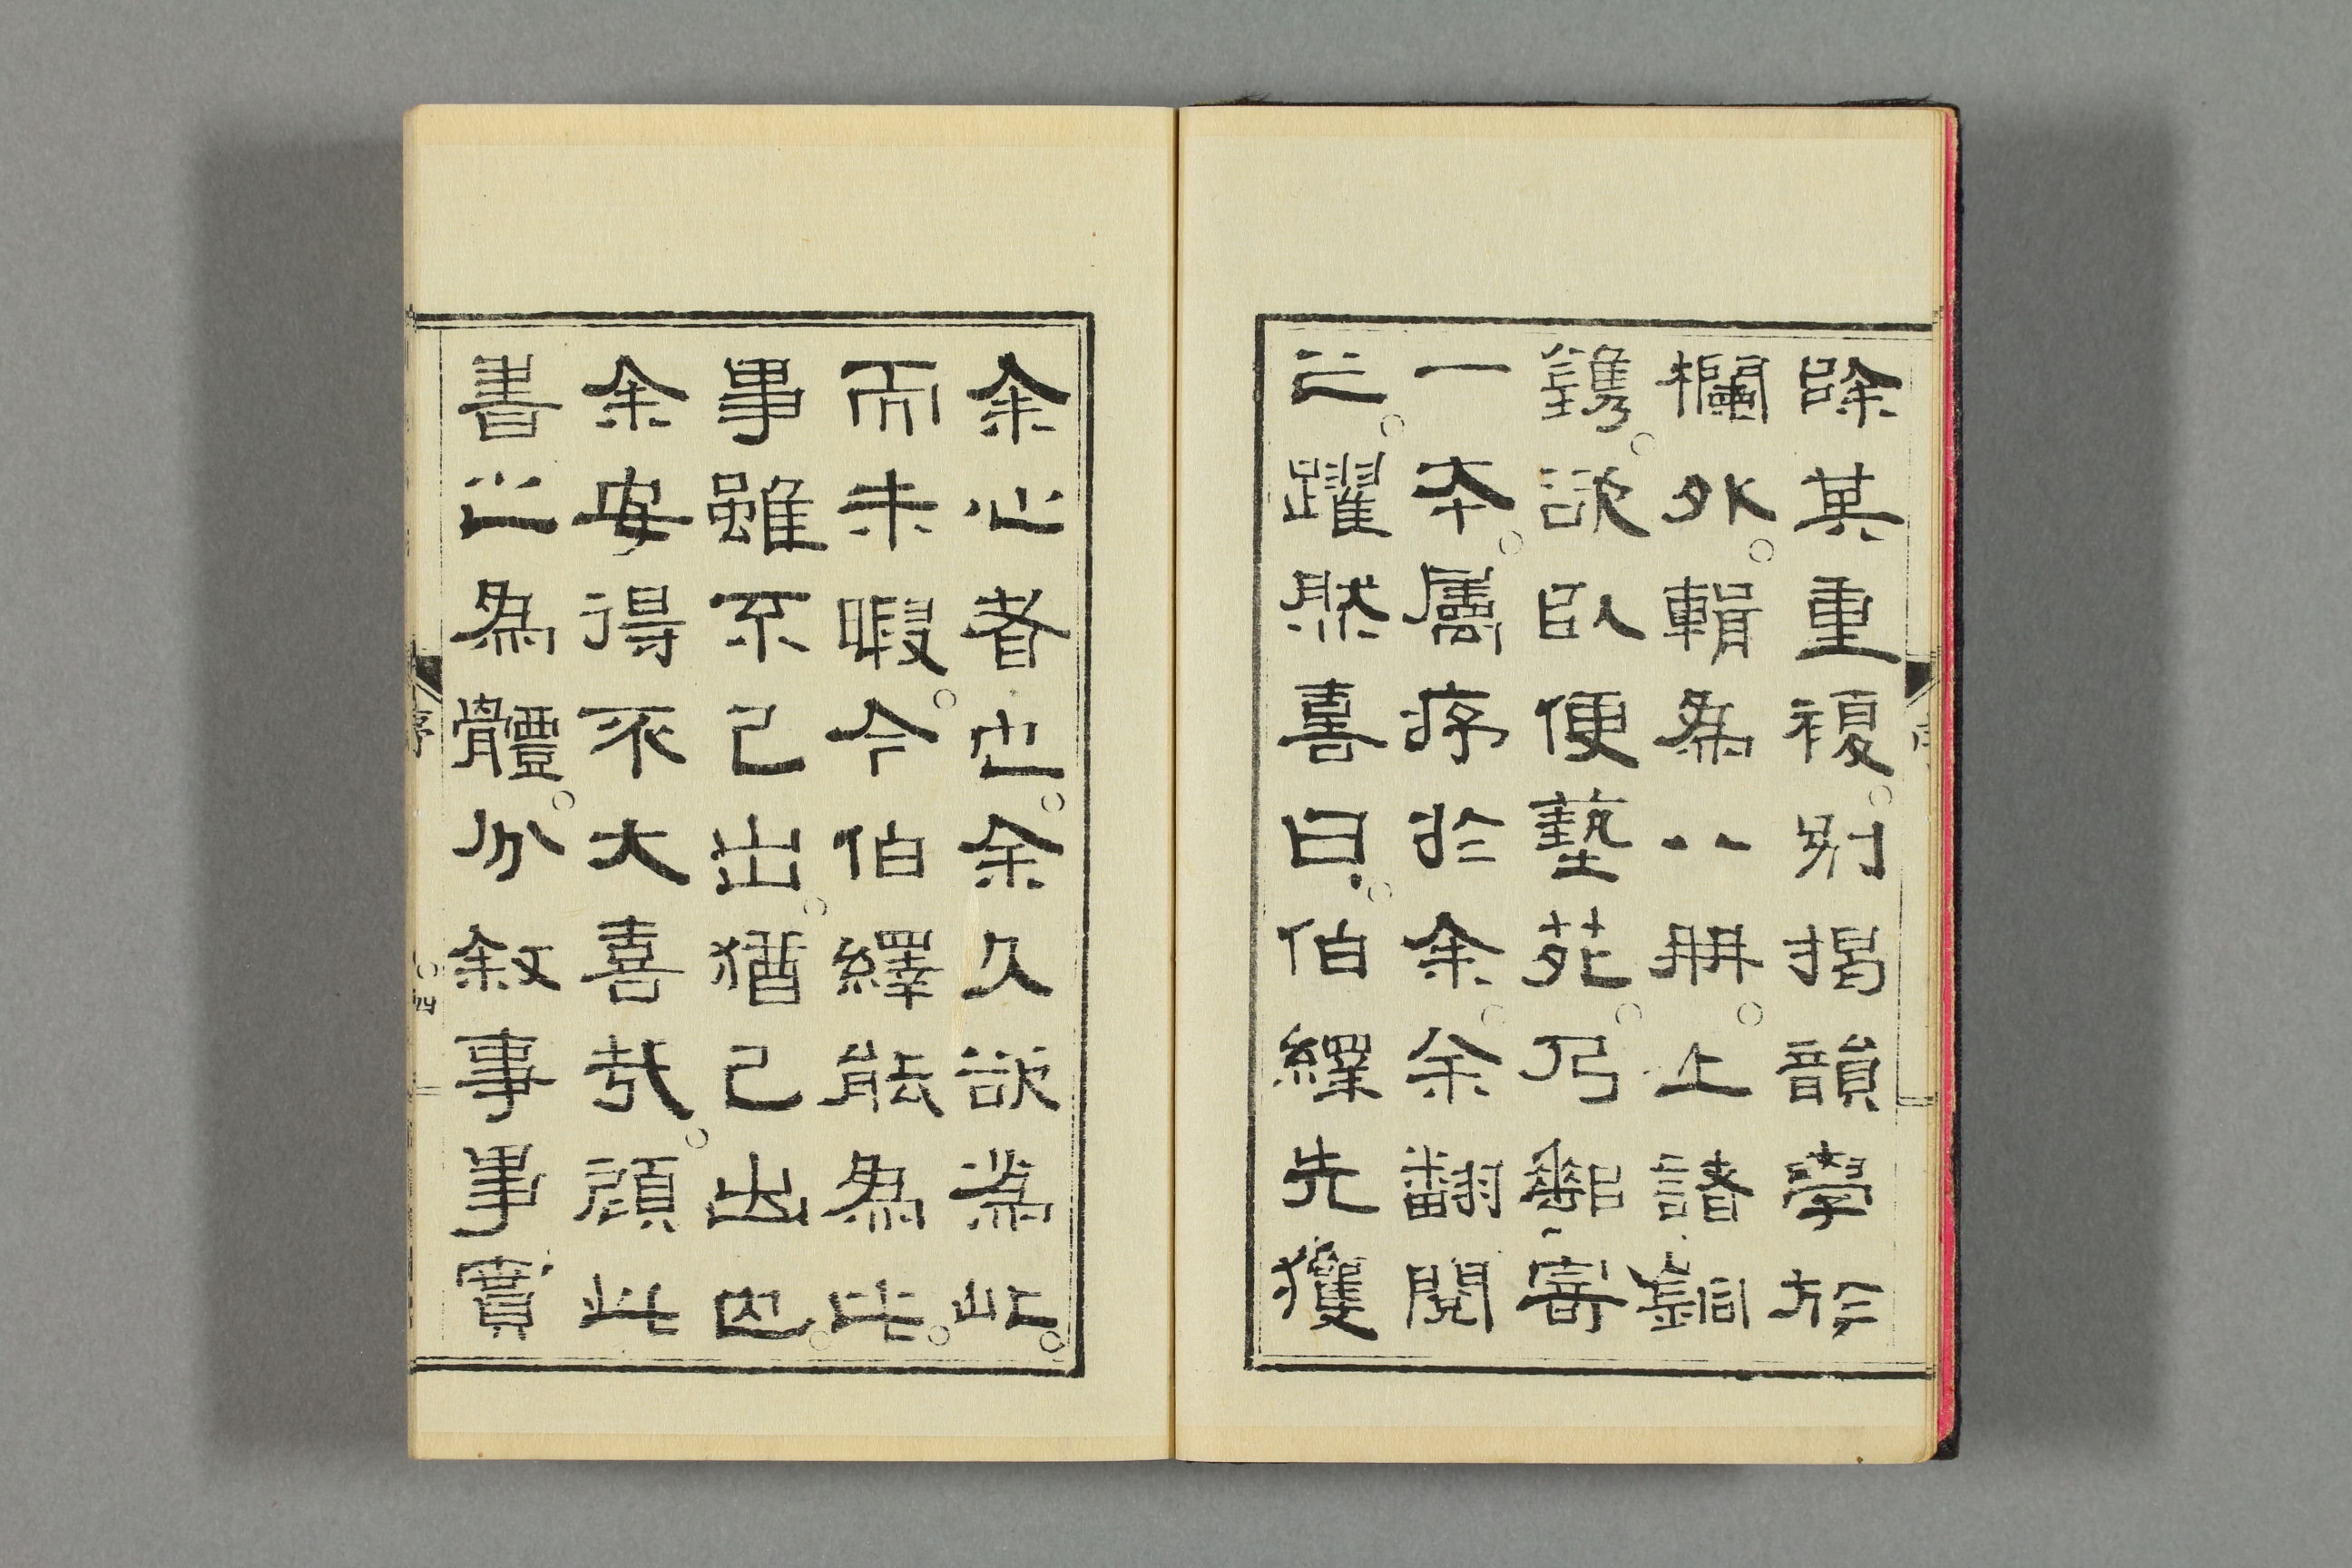 除其重複。別揭韻學於
欄外。輯為八冊。上諸銅
鐫。欲臥便藝苑。乃郵寄
一本。屬序於余。余翻閱
之。躍然喜曰。伯繹先獲
余心者也。余久欲為此。
而未暇。今伯繹能為此。
事雖不己出。猶己出也。
余安得不大喜哉。顧此
書之為體。分敘事事實
序
四